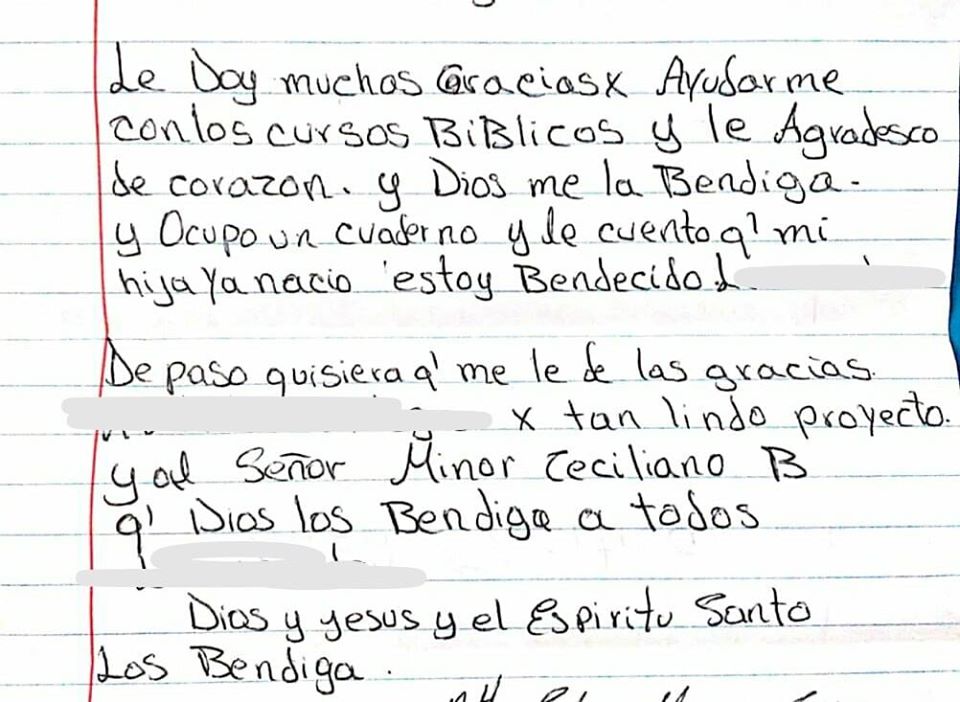 Le Doy muchas Graciasx Ayudarme
con los cursos BiBlicos y le Agradesco
de corazon. y Dios me la Bendiga.
y Ocupo un cuaderno y le cuento q' mi
hija Ya nacio estoy Bendecido!
De paso quisiera q' me le de las gracias.
x tan lindo proyecto.
y al Señor Minor Ceciliano B
q' Dios los Bendiga a todos
Dios y yesus y el Espiritu Santo
Los Bendiga.